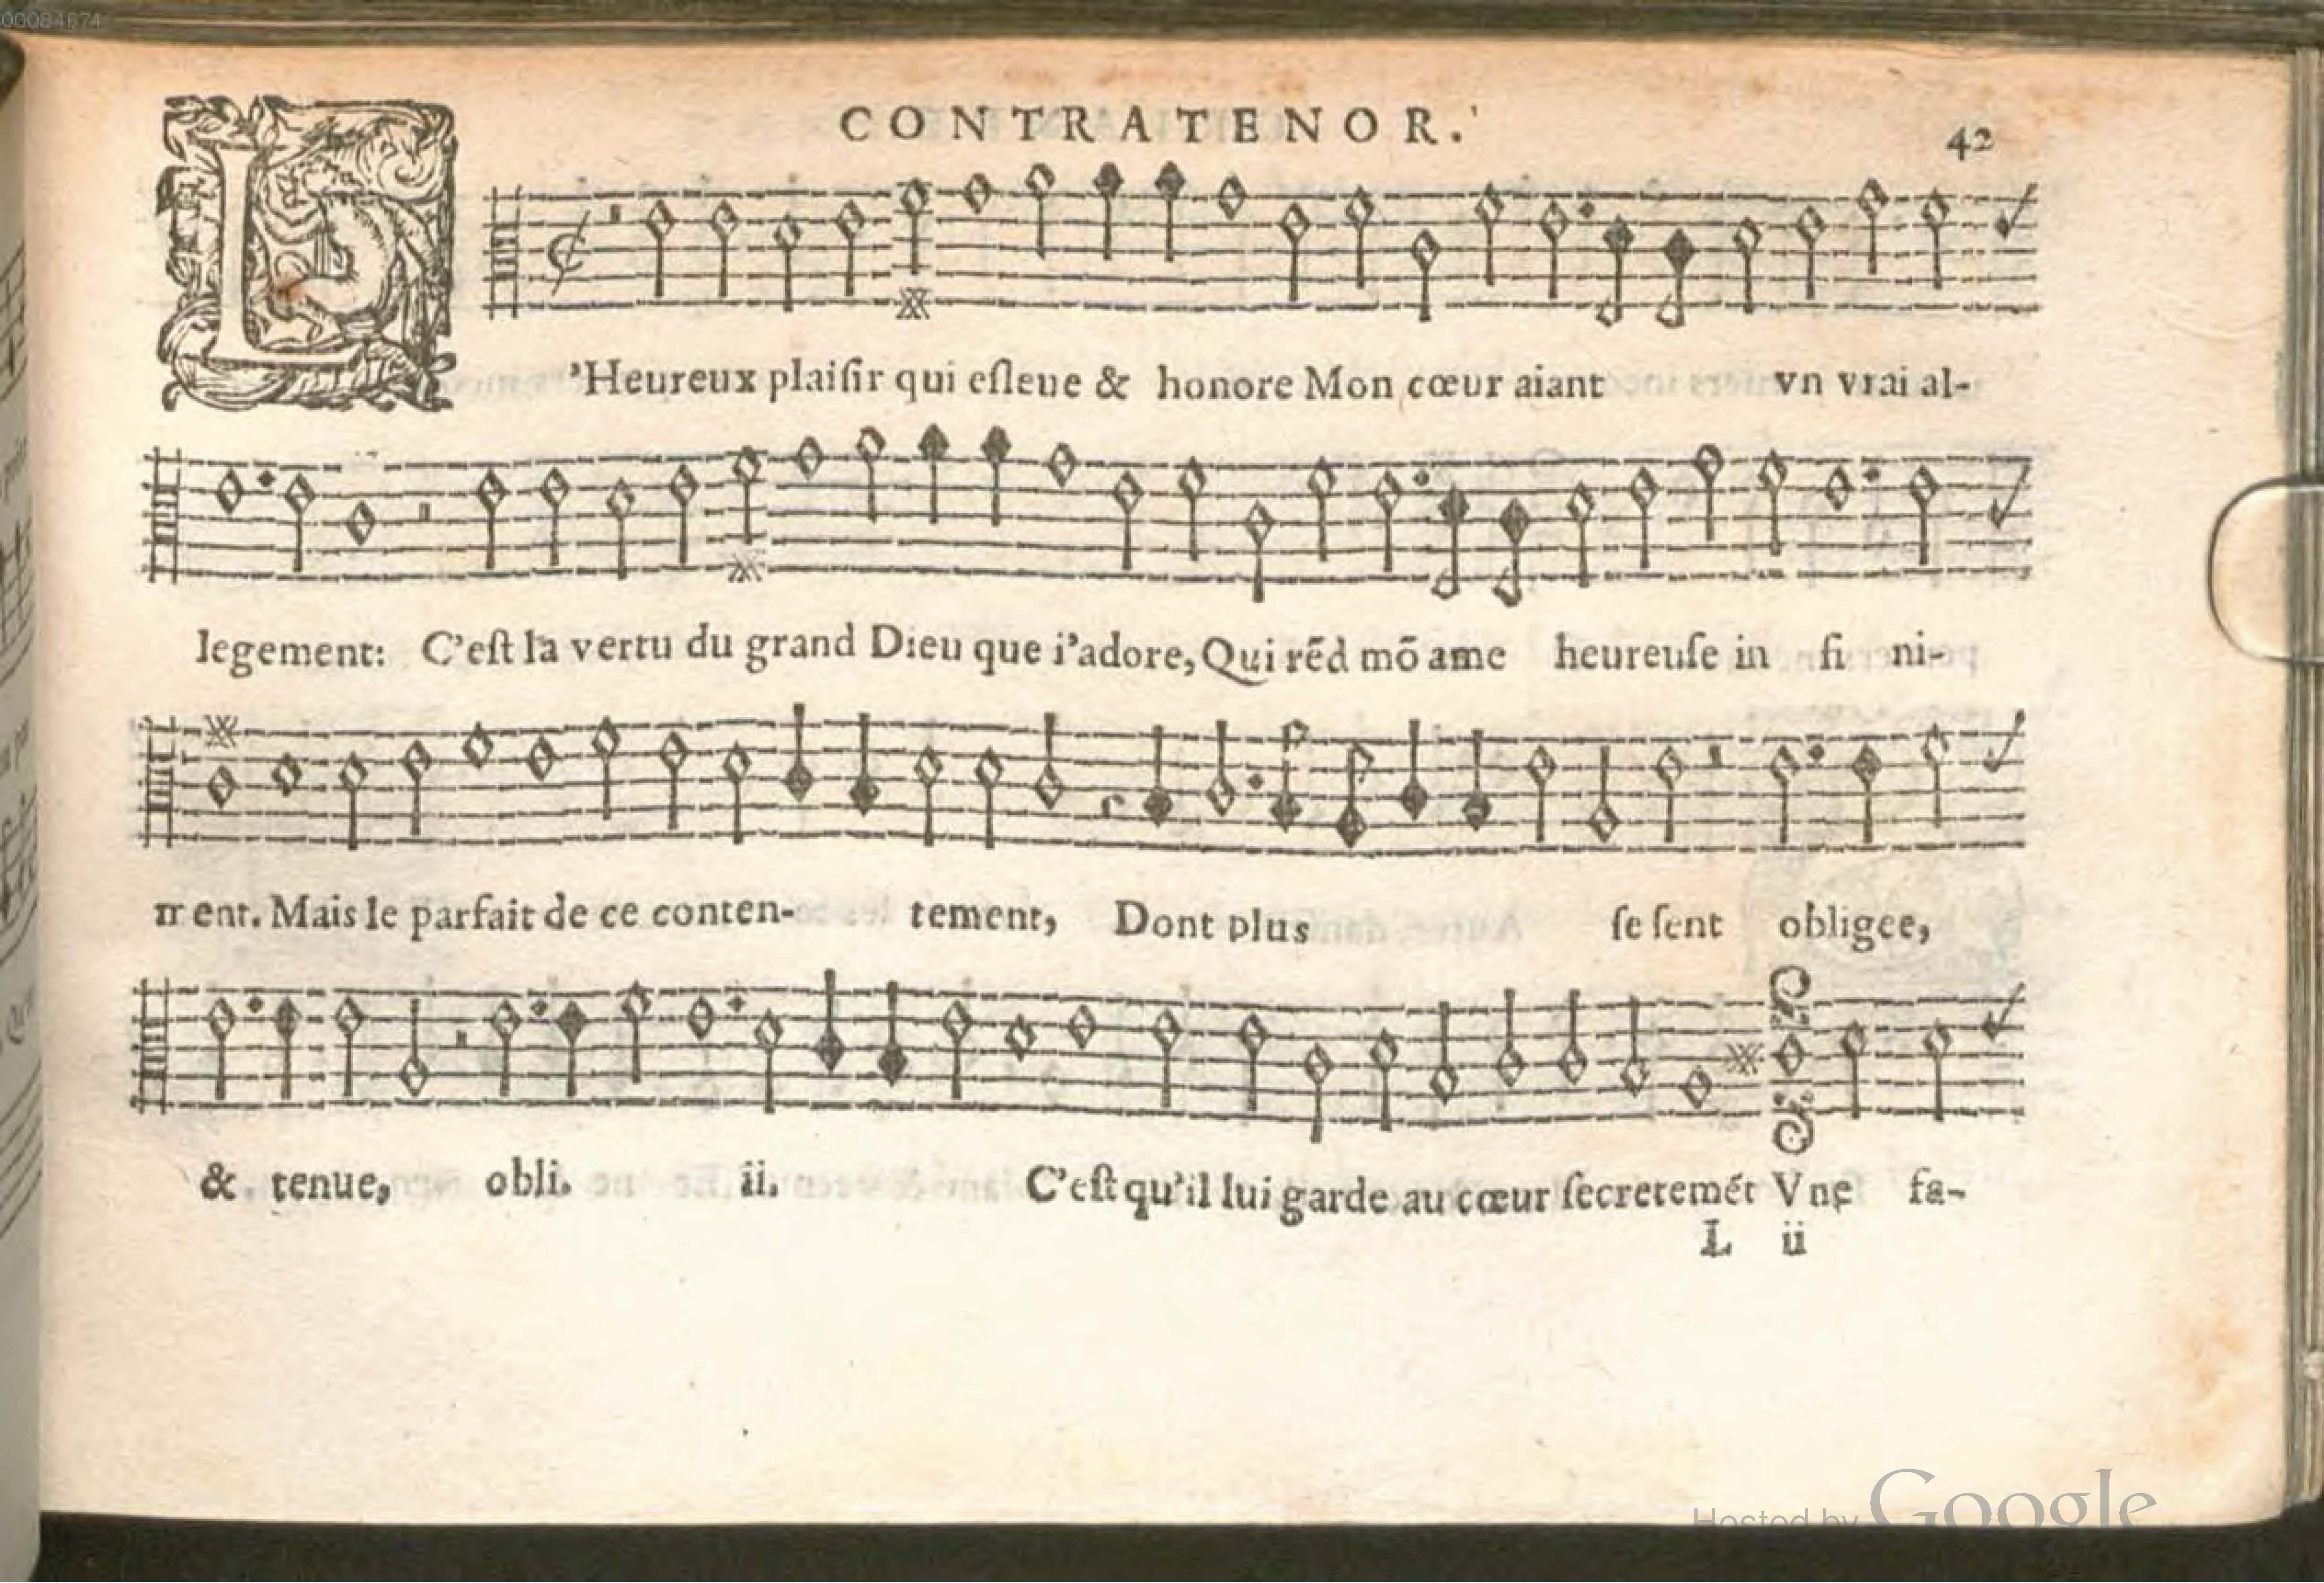 00084674
CONTRATENOR.
42
L'Heureux plaiſir qui eſleue & honore Mon cœur aiant vn vrai al-
legement: C'eſt la vertu du grand Dieu que i'adore, Qui rẽd mõ ame heureuſe in fi ni-
ment. Mais le parfait de ce conten- tement, Dont plus ſe ſent obligee,
& tenue, obli. ii. C'eſt qu'il lui garde au cœur ſecretemét Vne fa-
L ii
Hosted by Google